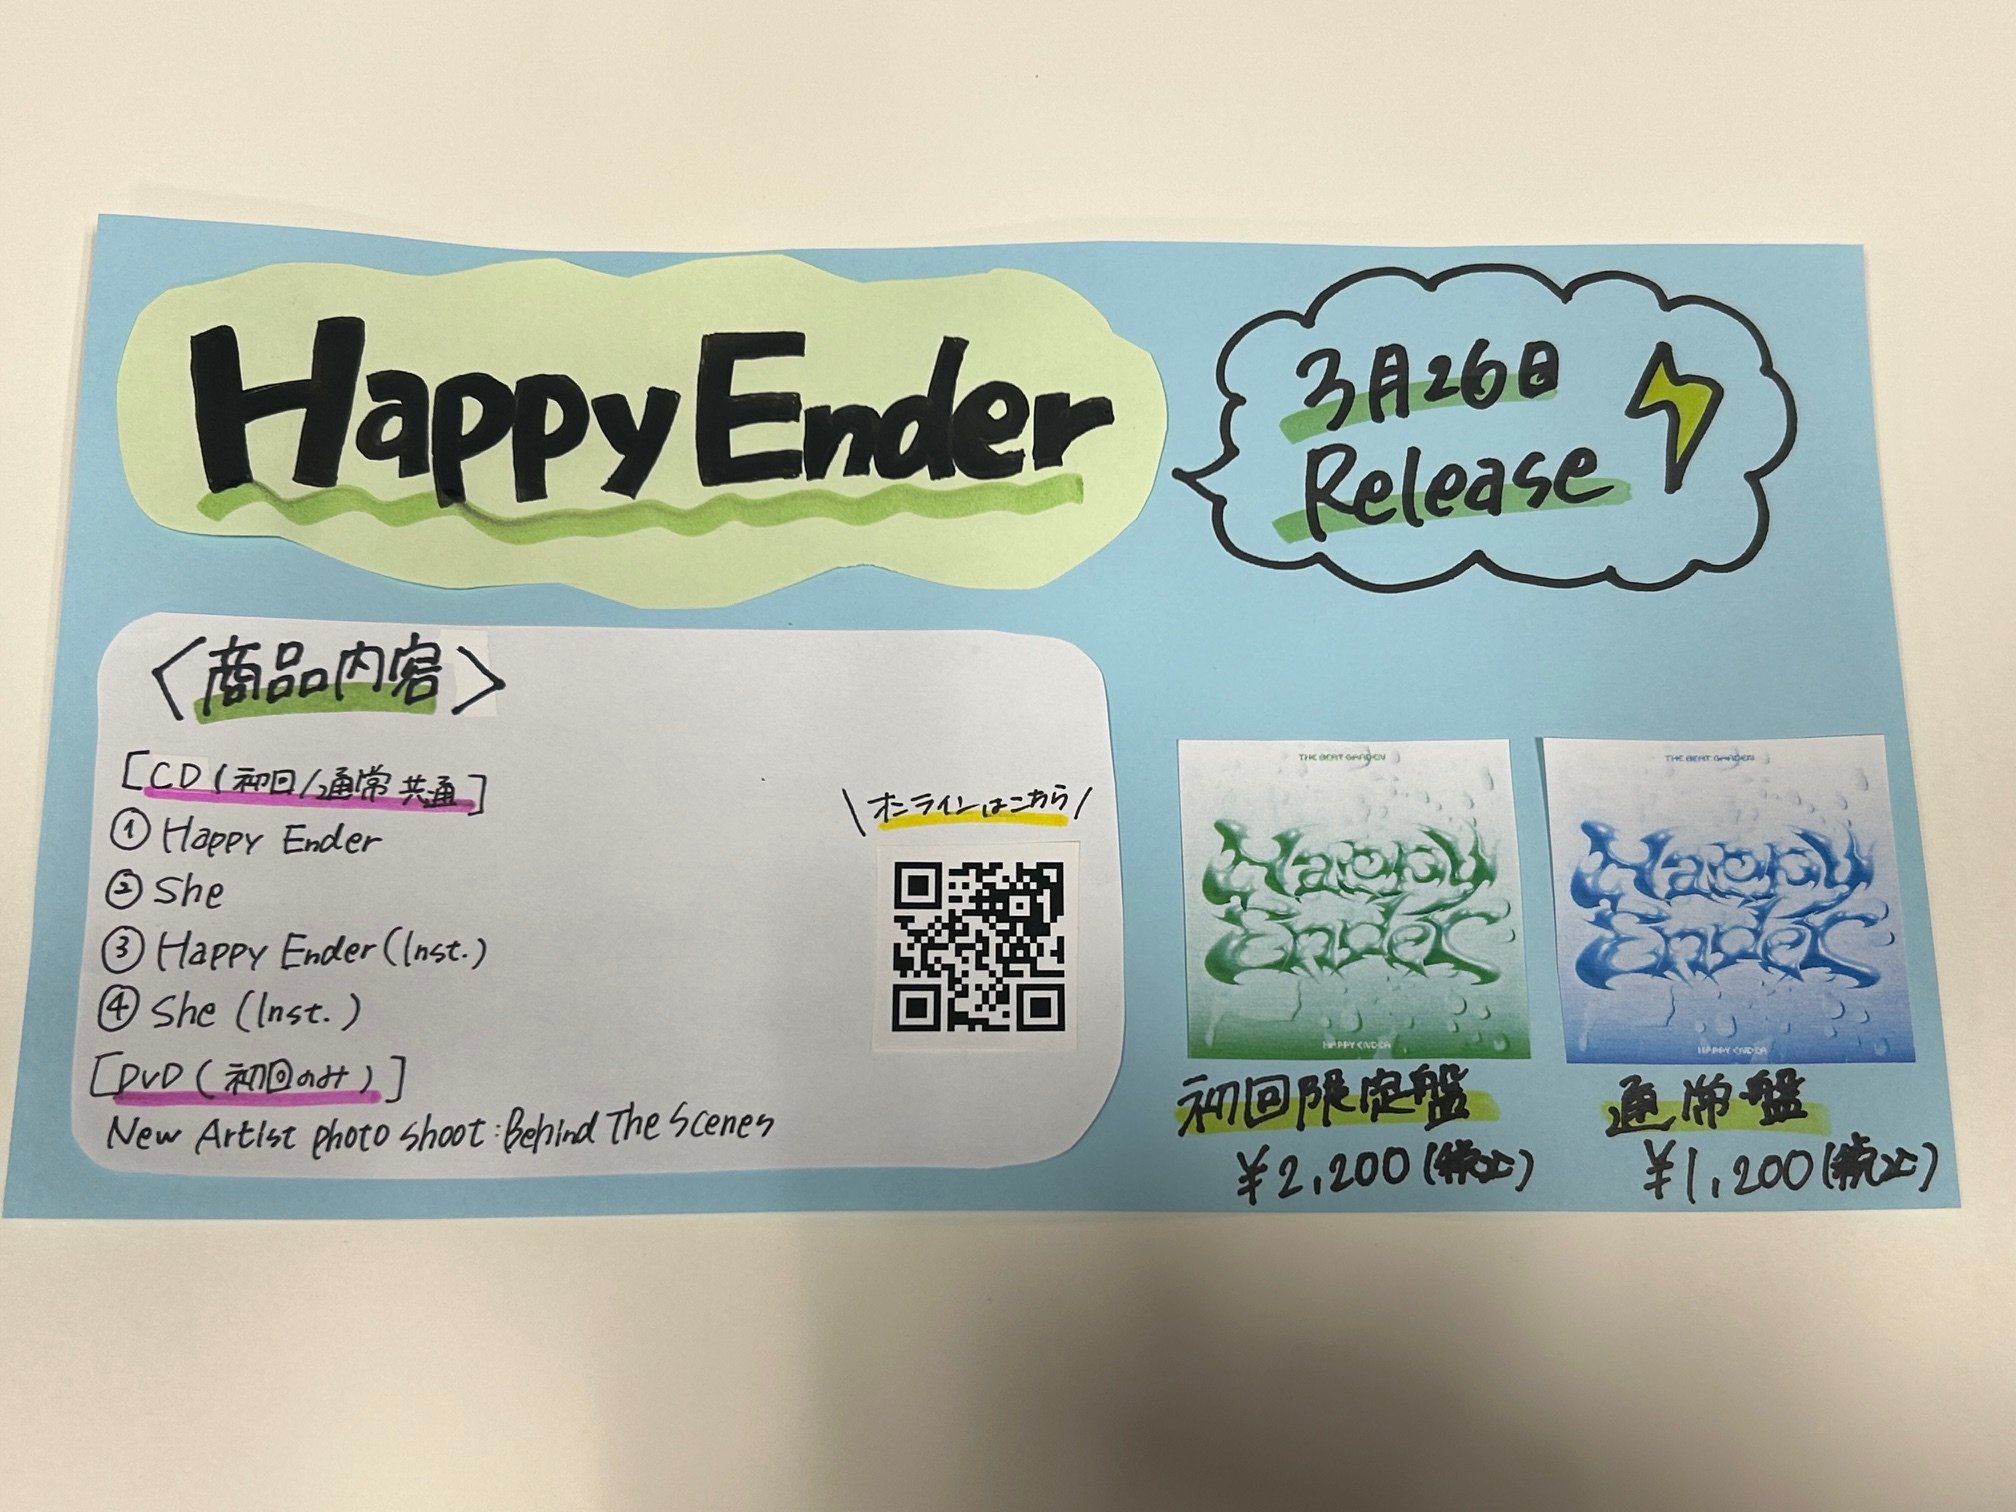 Happy Ender
3月26日
Release
〈商品内容〉
[CD(初回/通常共通]
① Happy Ender
② She
③ Happy Ender (Inst.)
④ She (Inst.)
[DVD(初回のみ)]
New Artist photo shoot:Behind The Scenes
\オンラインはこちら/
THE BEAT GARDEN
Happy
Ender
HAPPY ENDER
初回限定盤
¥2,200(税込)
THE BEAT GARDEN
Happy
Ender
HAPPY ENDER
通常盤
¥1,200(税込)